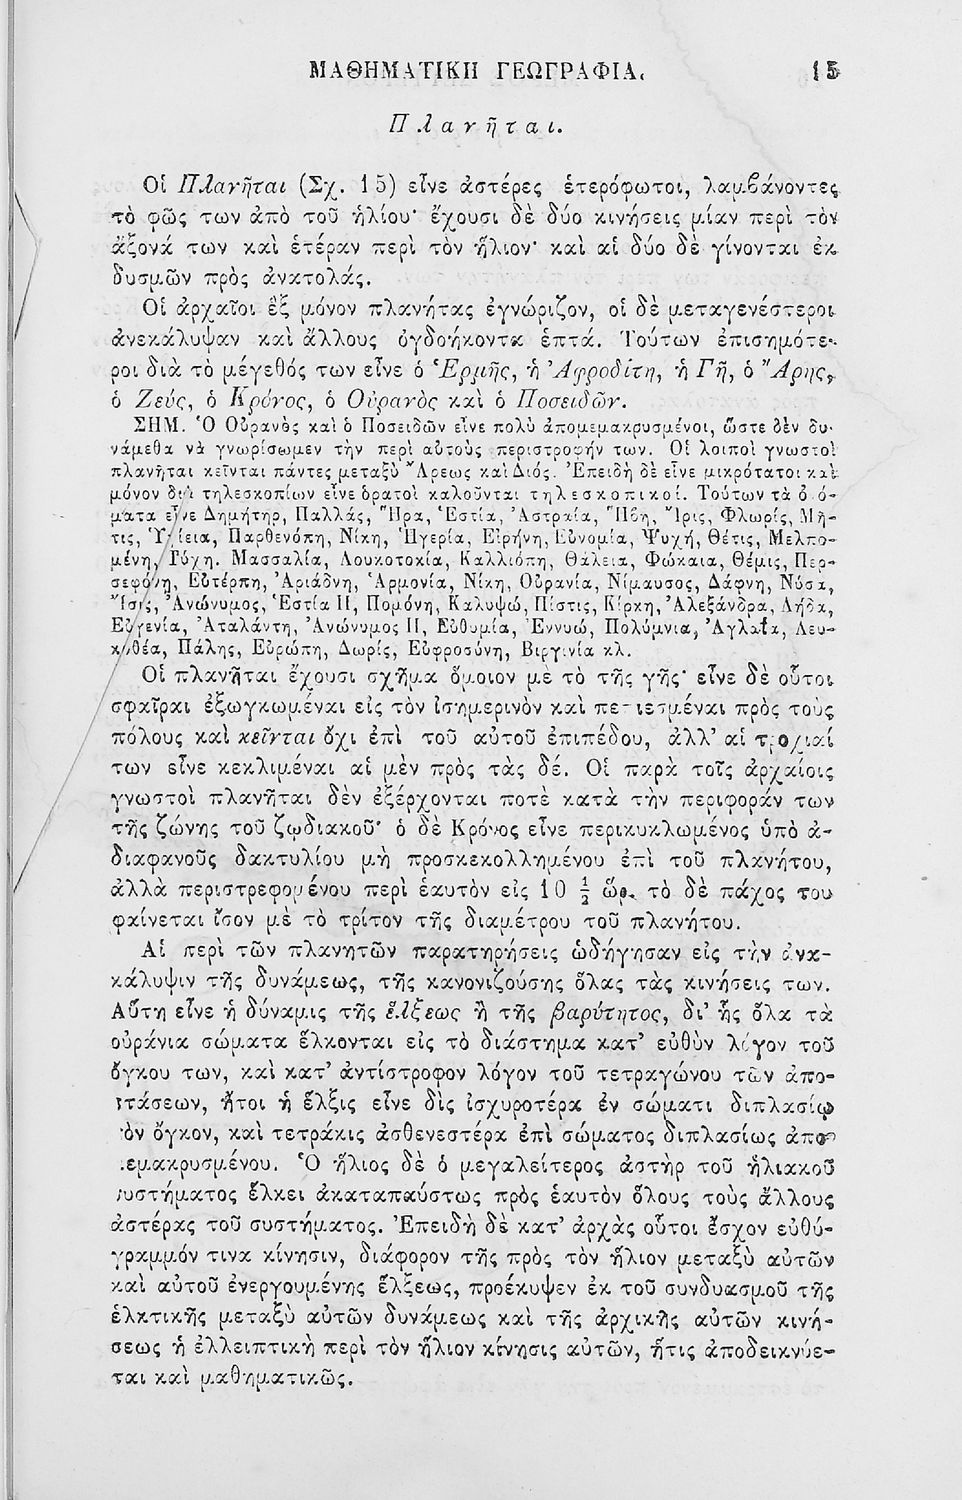 ΜΑΘΗΜΑΤΙΚΗ ΓΕΩΓΡΑΦΙΑ. 15
Πλανῆται.
Οἱ Πλανῆται (Σχ. 15) εἶνε ἀστέρες ἑτερόφωτοι, λαμβάνοντες
τὸ φῶς των ἀπὸ τοῦ ἡλίου· ἔχουσι δὲ δύο κινήσεις μίαν περὶ τὸν
ἄξονά των καὶ ἑτέραν περὶ τὸν ἥλιον· καὶ αἱ δύο δὲ γίνονται ἐκ
δυσμῶν πρὸς ἀνατολάς.
Οἱ ἀρχαῖοι ἓξ μόνον πλανήτας ἐγνώριζον, οἱ δὲ μεταγενέστεροι
ἀνεκάλυψαν καὶ ἄλλους ὀγδοήκοντα ἑπτά. Τούτων ἐπισημότε-
ροι διὰ τὸ μέγεθός των εἶνε ὁ Ἑρμῆς, ἡ Ἀφροδίτη, ἡ Γῆ, ὁ Ἄρης,
ὁ Ζεύς, ὁ Κρόνος, ὁ Οὐρανὸς καὶ ὁ Ποσειδῶν.
ΣΗΜ. Ὁ Οὐρανὸς καὶ ὁ Ποσειδῶν εἶνε πολὺ ἀπομεμακρυσμένοι, ὥστε δὲν δυ-
νάμεθα νὰ γνωρίσωμεν τὴν περὶ αὑτοὺς περιστροφήν των. Οἱ λοιποὶ γνωστοὶ
πλανῆται κεῖνται πάντες μεταξὺ Ἄρεως καὶ Διός. Ἐπειδὴ δὲ εἶνε μικρότατοι καὶ
μόνον διὰ τηλεσκοπίων εἶνε ὁρατοὶ καλοῦνται τηλεσκοπικοί. Τούτων τὰ ὀνό-
ματα εἶνε Δημήτηρ, Παλλάς, Ἥρα, Ἑστία, Ἀστραία, Ἥβη, Ἶρις, Φλωρίς, Μῆ-
τις, Ὑγίεια, Παρθενόπη, Νίκη, Ἠγερία, Εἰρήνη, Εὐνομία, Ψυχή, Θέτις, Μελπο-
μένη, Τύχη. Μασσαλία, Λουκοτοκία, Καλλιόπη, Θάλεια, Φώκαια, Θέμις, Περ-
σεφόνη, Εὐτέρπη, Ἀριάδνη, Ἁρμονία, Νίκη, Οὐρανία, Νίμαυσος, Δάφνη, Νύσα,
Ἴσις, Ἀνώνυμος, Ἑστία ΙΙ, Πομόνη, Καλυψώ, Πίστις, Κίρκη, Ἀλεξάνδρα, Λήδα,
Εὐγενία, Ἀταλάντη, Ἀνώνυμος ΙΙ, Εὐθυμία, Ἐννυώ, Πολύμνια, Ἀγλαΐα, Λευ-
κοθέα, Πάλης, Εὐρώπη, Δωρίς, Εὐφροσύνη, Βιργινία κλ.
Οἱ πλανῆται ἔχουσι σχῆμα ὅμοιον με τὸ τῆς γῆς· εἶνε δὲ οὗτοι
σφαῖραι ἐξωγκωμέναι εἰς τὸν ἰσημερινὸν καὶ πεπιεσμέναι πρὸς τοὺς
πόλους καὶ κεῖνται ὄχι ἐπὶ τοῦ αὐτοῦ ἐπιπέδου, ἀλλ' αἱ τροχιαί
των εἶνε κεκλιμέναι αἱ μὲν πρὸς τὰς δέ. Οἱ παρὰ τοῖς ἀρχαίοις
γνωστοὶ πλανῆται δὲν ἐξέρχονται ποτὲ κατὰ τὴν περιφορὰν των
τῆς ζώνης τοῦ ζῳδιακοῦ· ὁ δὲ Κρόνος εἶνε περικυκλωμένος ὑπὸ ἀ-
διαφανοῦς δακτυλίου μὴ προσκεκολλημένου ἐπὶ τοῦ πλανήτου,
ἀλλὰ περιστρεφομένου περὶ ἑαυτὸν εἰς 10 ½ ὥρ. τὸ δὲ πάχος του
φαίνεται ἴσον μὲ τὸ τρίτον τῆς διαμέτρου τοῦ πλανήτου.
Αἱ περὶ τῶν πλανητῶν παρατηρήσεις ὡδήγησαν εἰς τὴν ἀνα-
κάλυψιν τῆς δυνάμεως, τῆς κανονιζούσης ὅλας τὰς κινήσεις των.
Αὕτη εἶνε ἡ δύναμις τῆς ἕλξεως ἢ τῆς βαρύτητος, δι' ἧς ὅλα τὰ
οὐράνια σώματα ἕλκονται εἰς τὸ διάστημα κατ' εὐθὺν λόγον τοῦ
ὄγκου των, καὶ κατ' ἀντίστροφον λόγον τοῦ τετραγώνου τῶν ἀπο-
στάσεων, ἤτοι ἡ ἕλξις εἶνε δὶς ἰσχυροτέρα ἐν σώματι διπλασίῳ
τὸν ὄγκον, καὶ τετράκις ἀσθενεστέρα ἐπὶ σώματος διπλασίως ἀπο-
μεμακρυσμένου. Ὁ ἥλιος δὲ ὁ μεγαλείτερος ἀστὴρ τοῦ ἡλιακοῦ
συστήματος ἕλκει ἀκαταπαύστως πρὸς ἑαυτὸν ὅλους τοὺς ἄλλους
ἀστέρας τοῦ συστήματος. Ἐπειδὴ δὲ κατ' ἀρχὰς οὗτοι ἔσχον εὐθύ-
γραμμόν τινα κίνησιν, διάφορον τῆς πρὸς τὸν ἥλιον μεταξὺ αὐτῶν
καὶ αὐτοῦ ἐνεργουμένης ἕλξεως, προέκυψεν ἐκ τοῦ συνδυασμοῦ τῆς
ἑλκτικῆς μεταξὺ αὐτῶν δυνάμεως καὶ τῆς ἀρχικῆς αὐτῶν κινή-
σεως ἡ ἐλλειπτικὴ περὶ τὸν ἥλιον κίνησις αὐτῶν, ἥτις ἀποδεικνύε-
ται καὶ μαθηματικῶς.